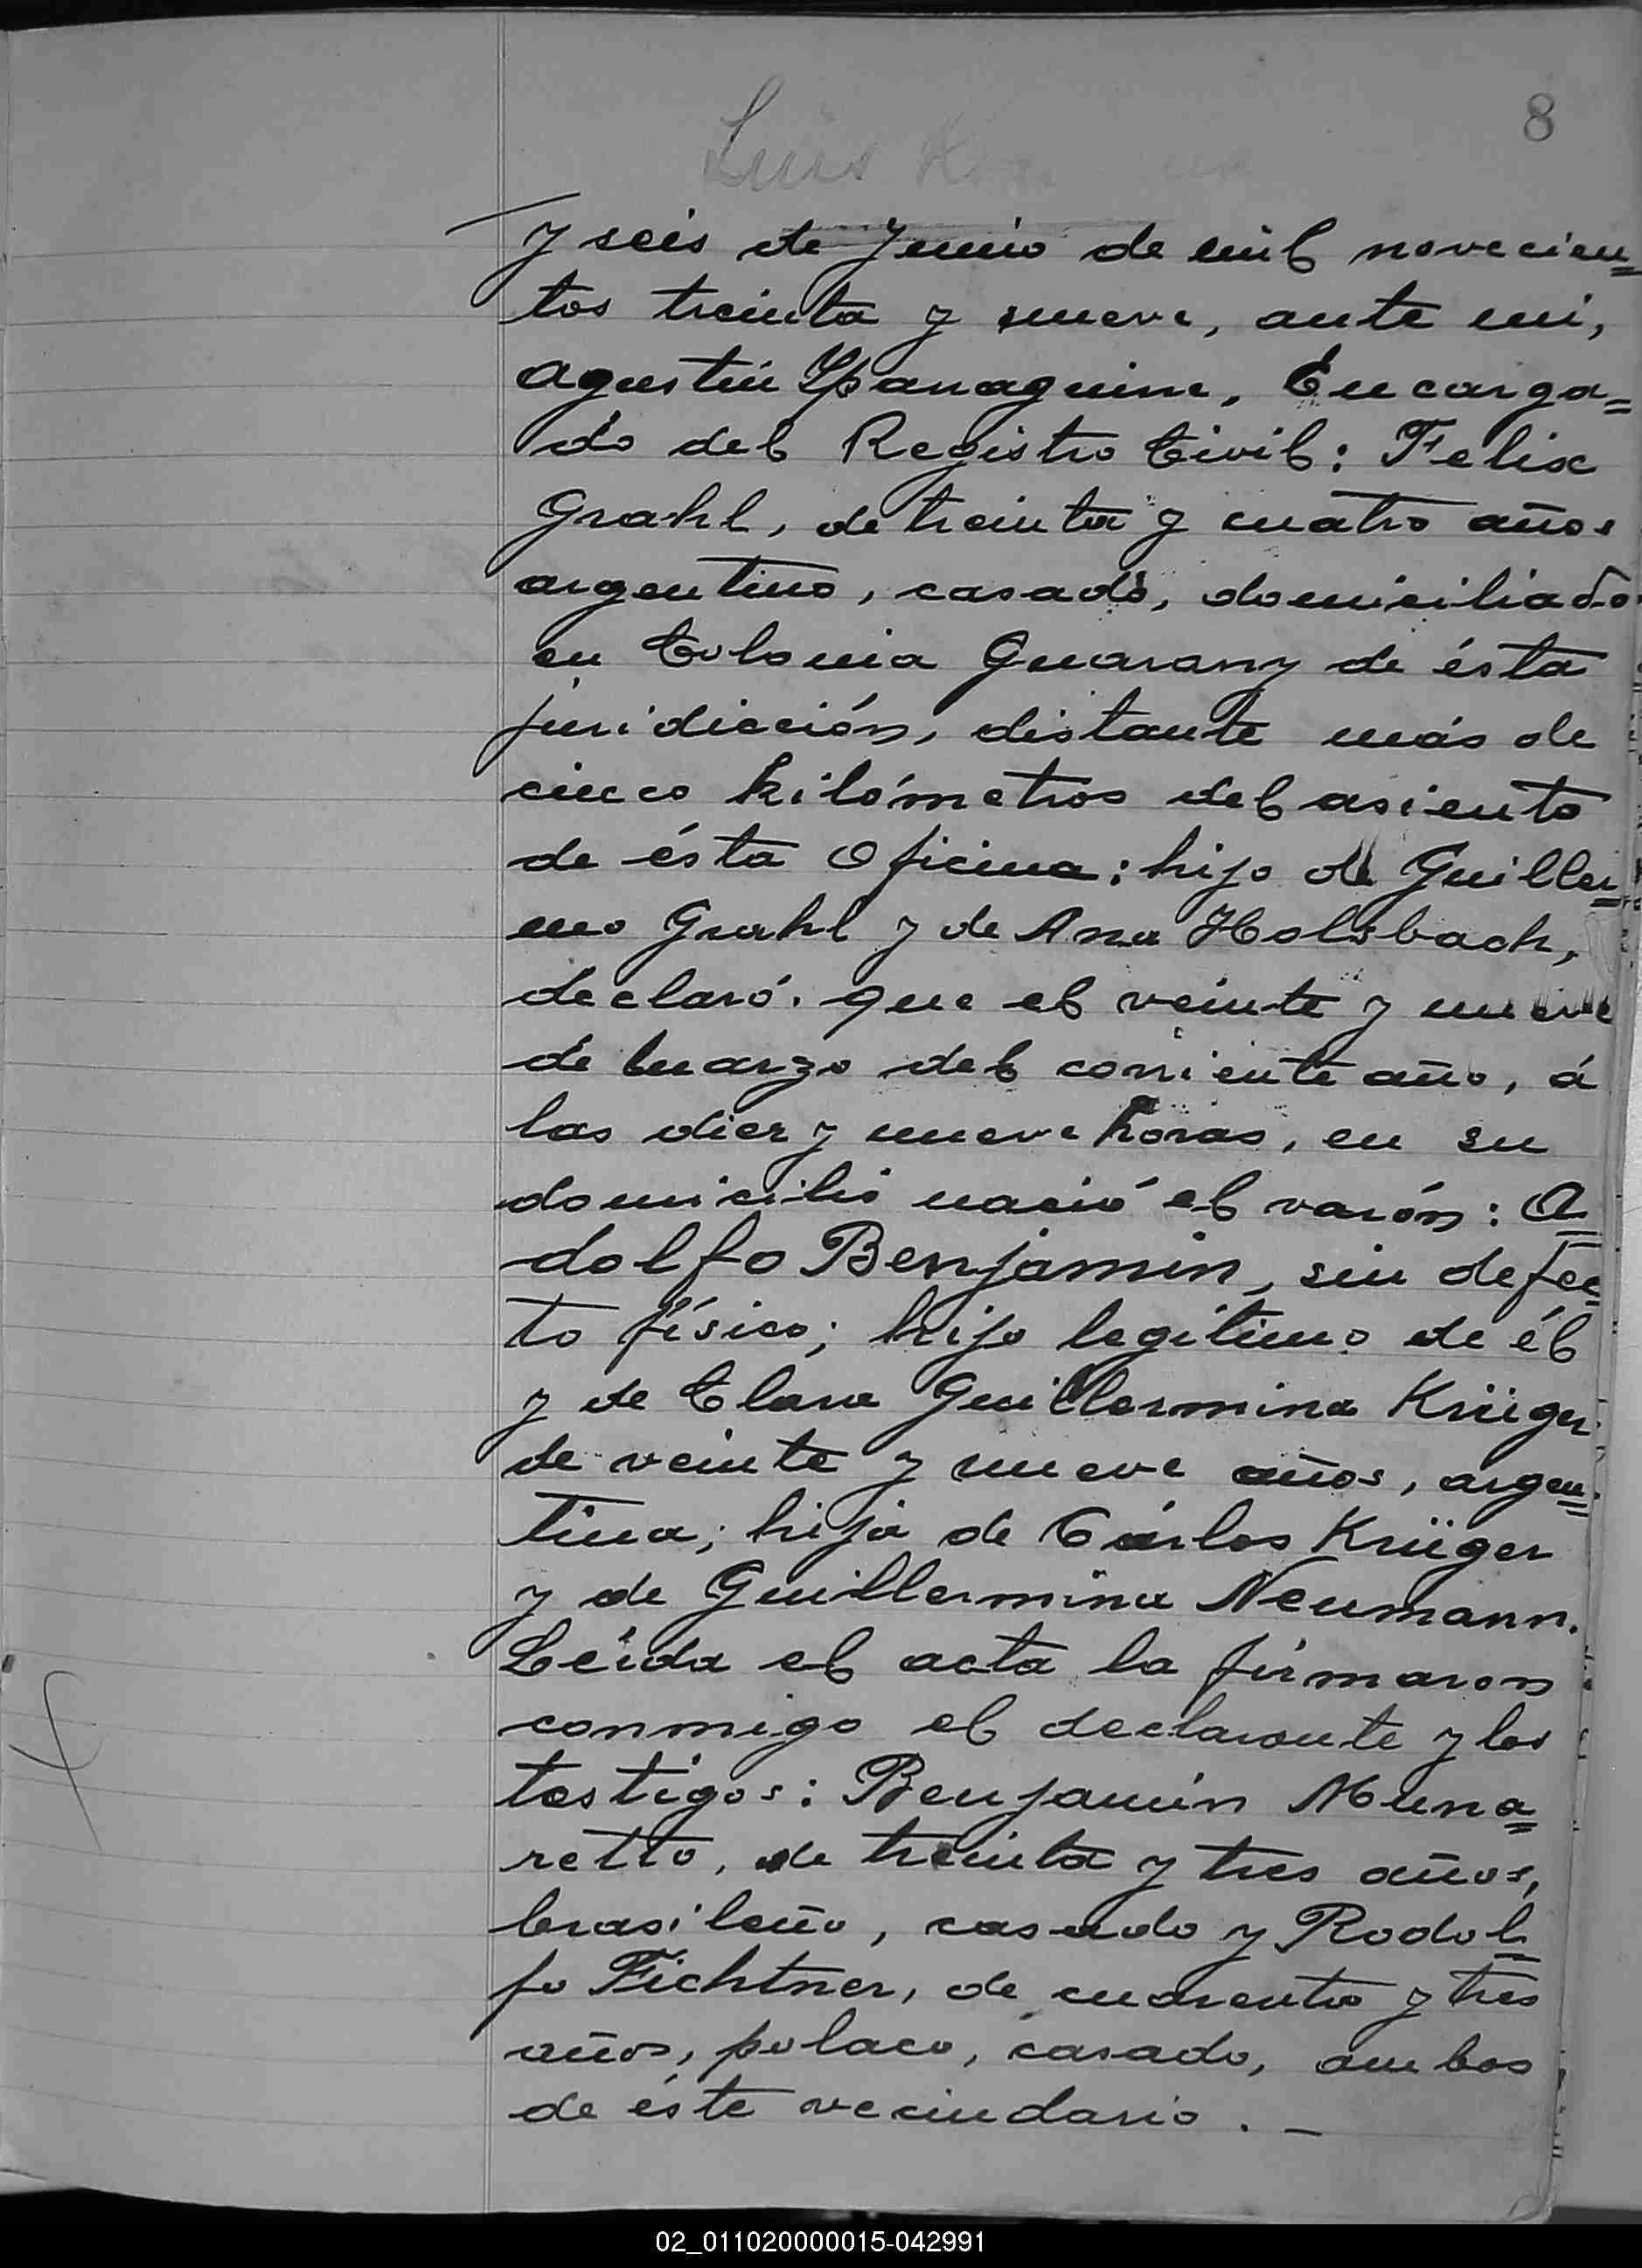 8
Luis
y seis de Junio de mil novecien=
tos treinta y nueve, ante mi,
Agustín Yparaguirre, Encarga=
do del Registro Civil: Felix
Grahl, de treinta y cuatro años
argentino, casado, domiciliado
en Colonia Guarany de ésta
juridicción, distante más de
cinco kilómetros del asiento
de ésta Oficina: hijo de Guiller=
mo Grahl y de Ana Holsbach,
declaró. que el veinte y nueve
de Marzo del corriente año, á
las diez y nueve horas, en su
domicilio nació el varón: A=
dolfo Benjamin, sin defec=
to físico; hijo legítimo de él
y de Clara Guillermina Krüger
de veinte y nueve años, argen=
tina; hija de Cárlos Krüger
y de Guillermina Neumann.
Leída el acta la firmaron
conmigo el declarante y los
testigos: Benjamín Muna=
retto, de treinta y tres años,
brasileño, casado y Rodol=
fo Fichtner, de cuarenta y tres
años, polaco, casado, ambos
de éste vecindario. —
02_011020000015-042991